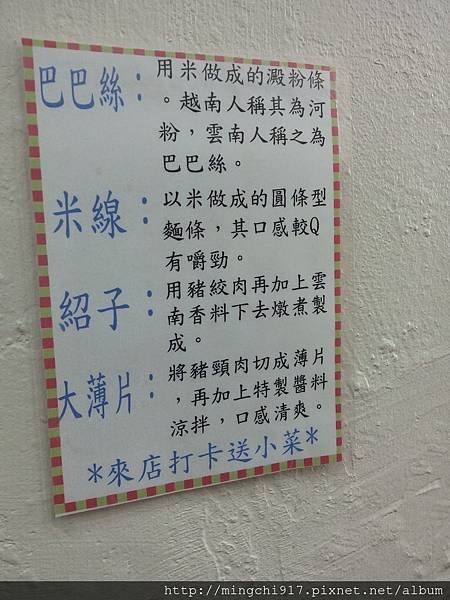 巴巴絲：用米做成的澱粉條
。越南人稱其為河
粉，雲南人稱之為
巴巴絲。
米線：以米做成的圓條型
麵條，其口感較Q
有嚼勁。
紹子：用豬絞肉再加上雲
南香料下去燉煮製
成。
大薄片：將豬頸肉切成薄片
，再加上特製醬料
涼拌，口感清爽。
*來店打卡送小菜*
http://mingchi917.pixnet.net/album